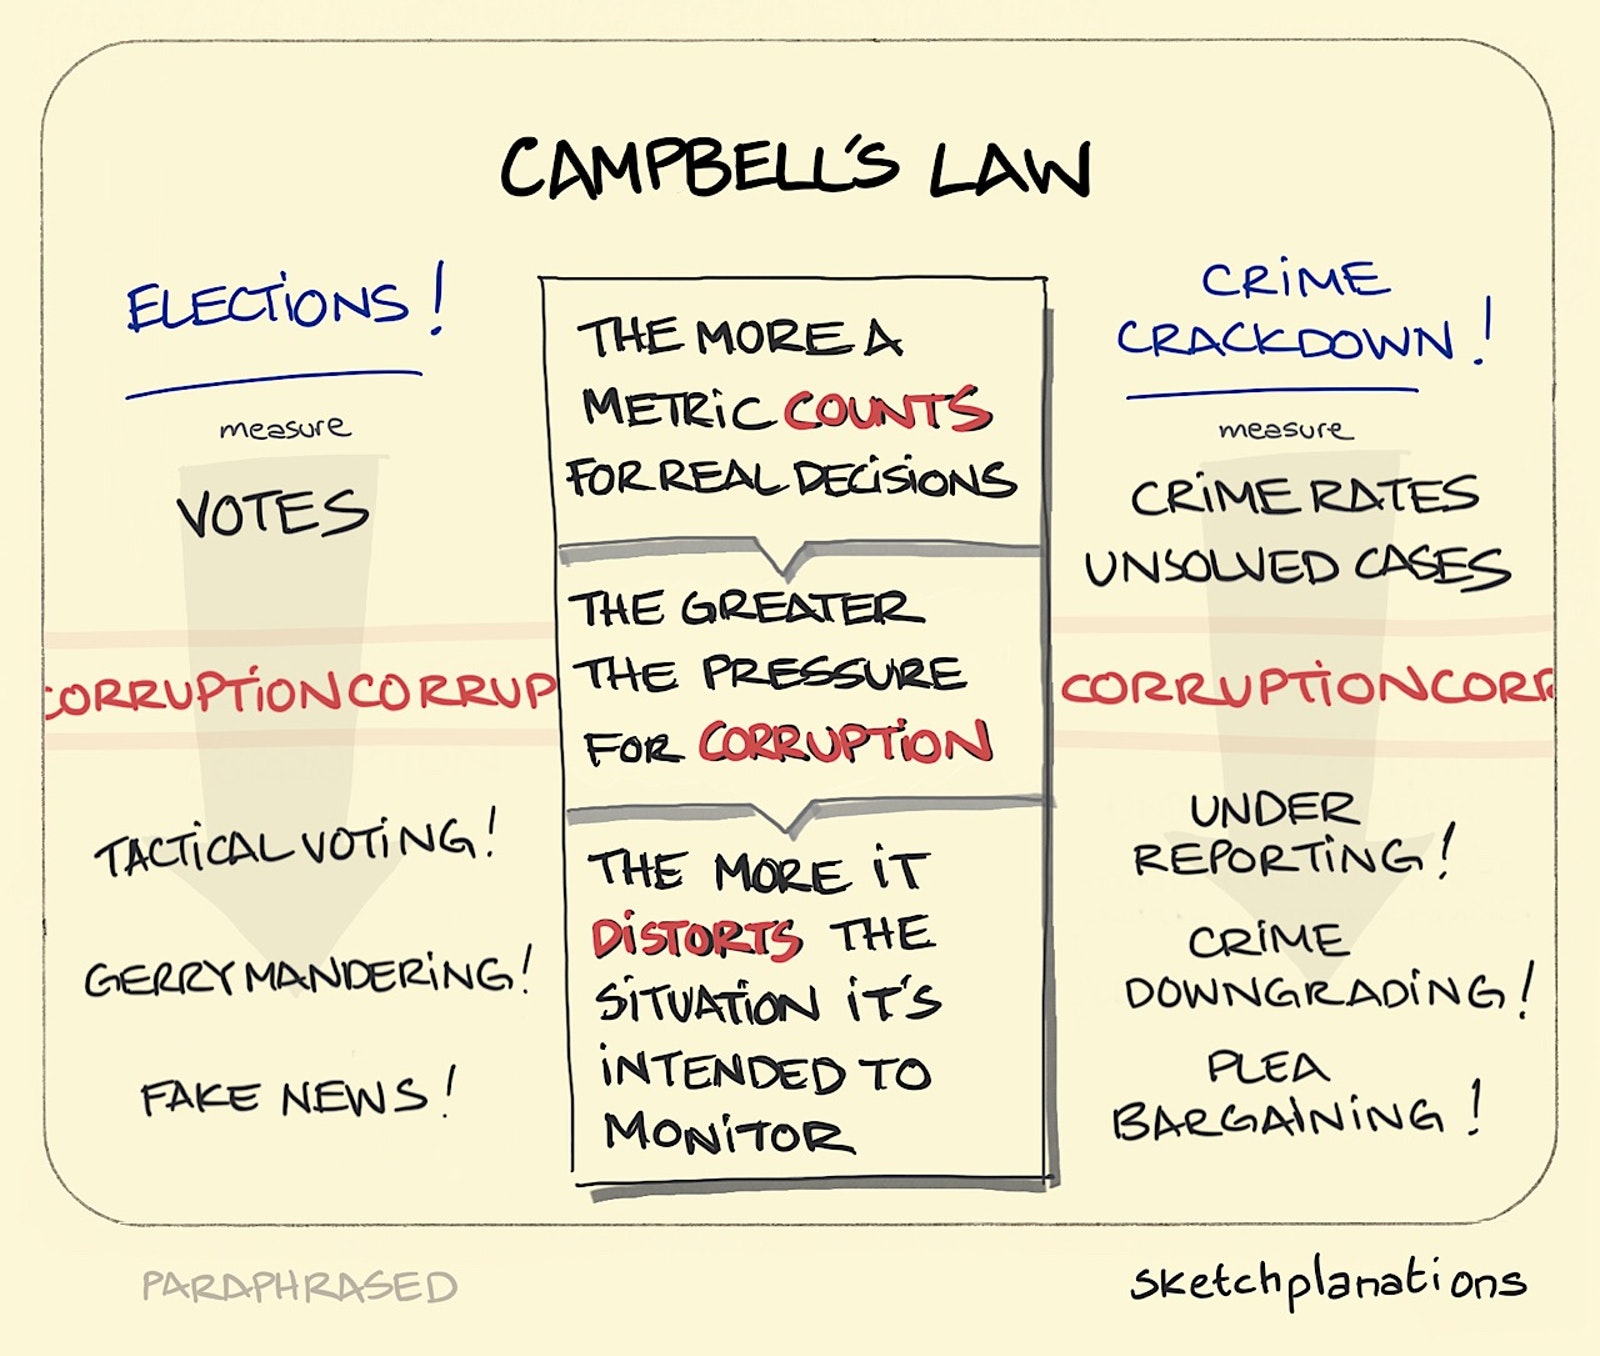 CAMPBELL'S LAW
ELECTIONS!
measure
VOTES
CORRUPTION CORRUP
TACTICAL VOTING!
GERRYMANDERING!
FAKE NEWS!
THE MORE A
METRIC COUNTS
FOR REAL DECISIONS
THE GREATER
THE PRESSURE
FOR CORRUPTION
THE MORE IT
DISTORTS THE
SITUATION IT'S
INTENDED TO
MONITOR
CRIME
CRACKDOWN!
measure
CRIME RATES
UNSOLVED CASES
CORRUPTION CORR
UNDER
REPORTING!
CRIME
DOWNGRADING!
PLEA
BARGAINING!
PARAPHRASED
sketchplanations